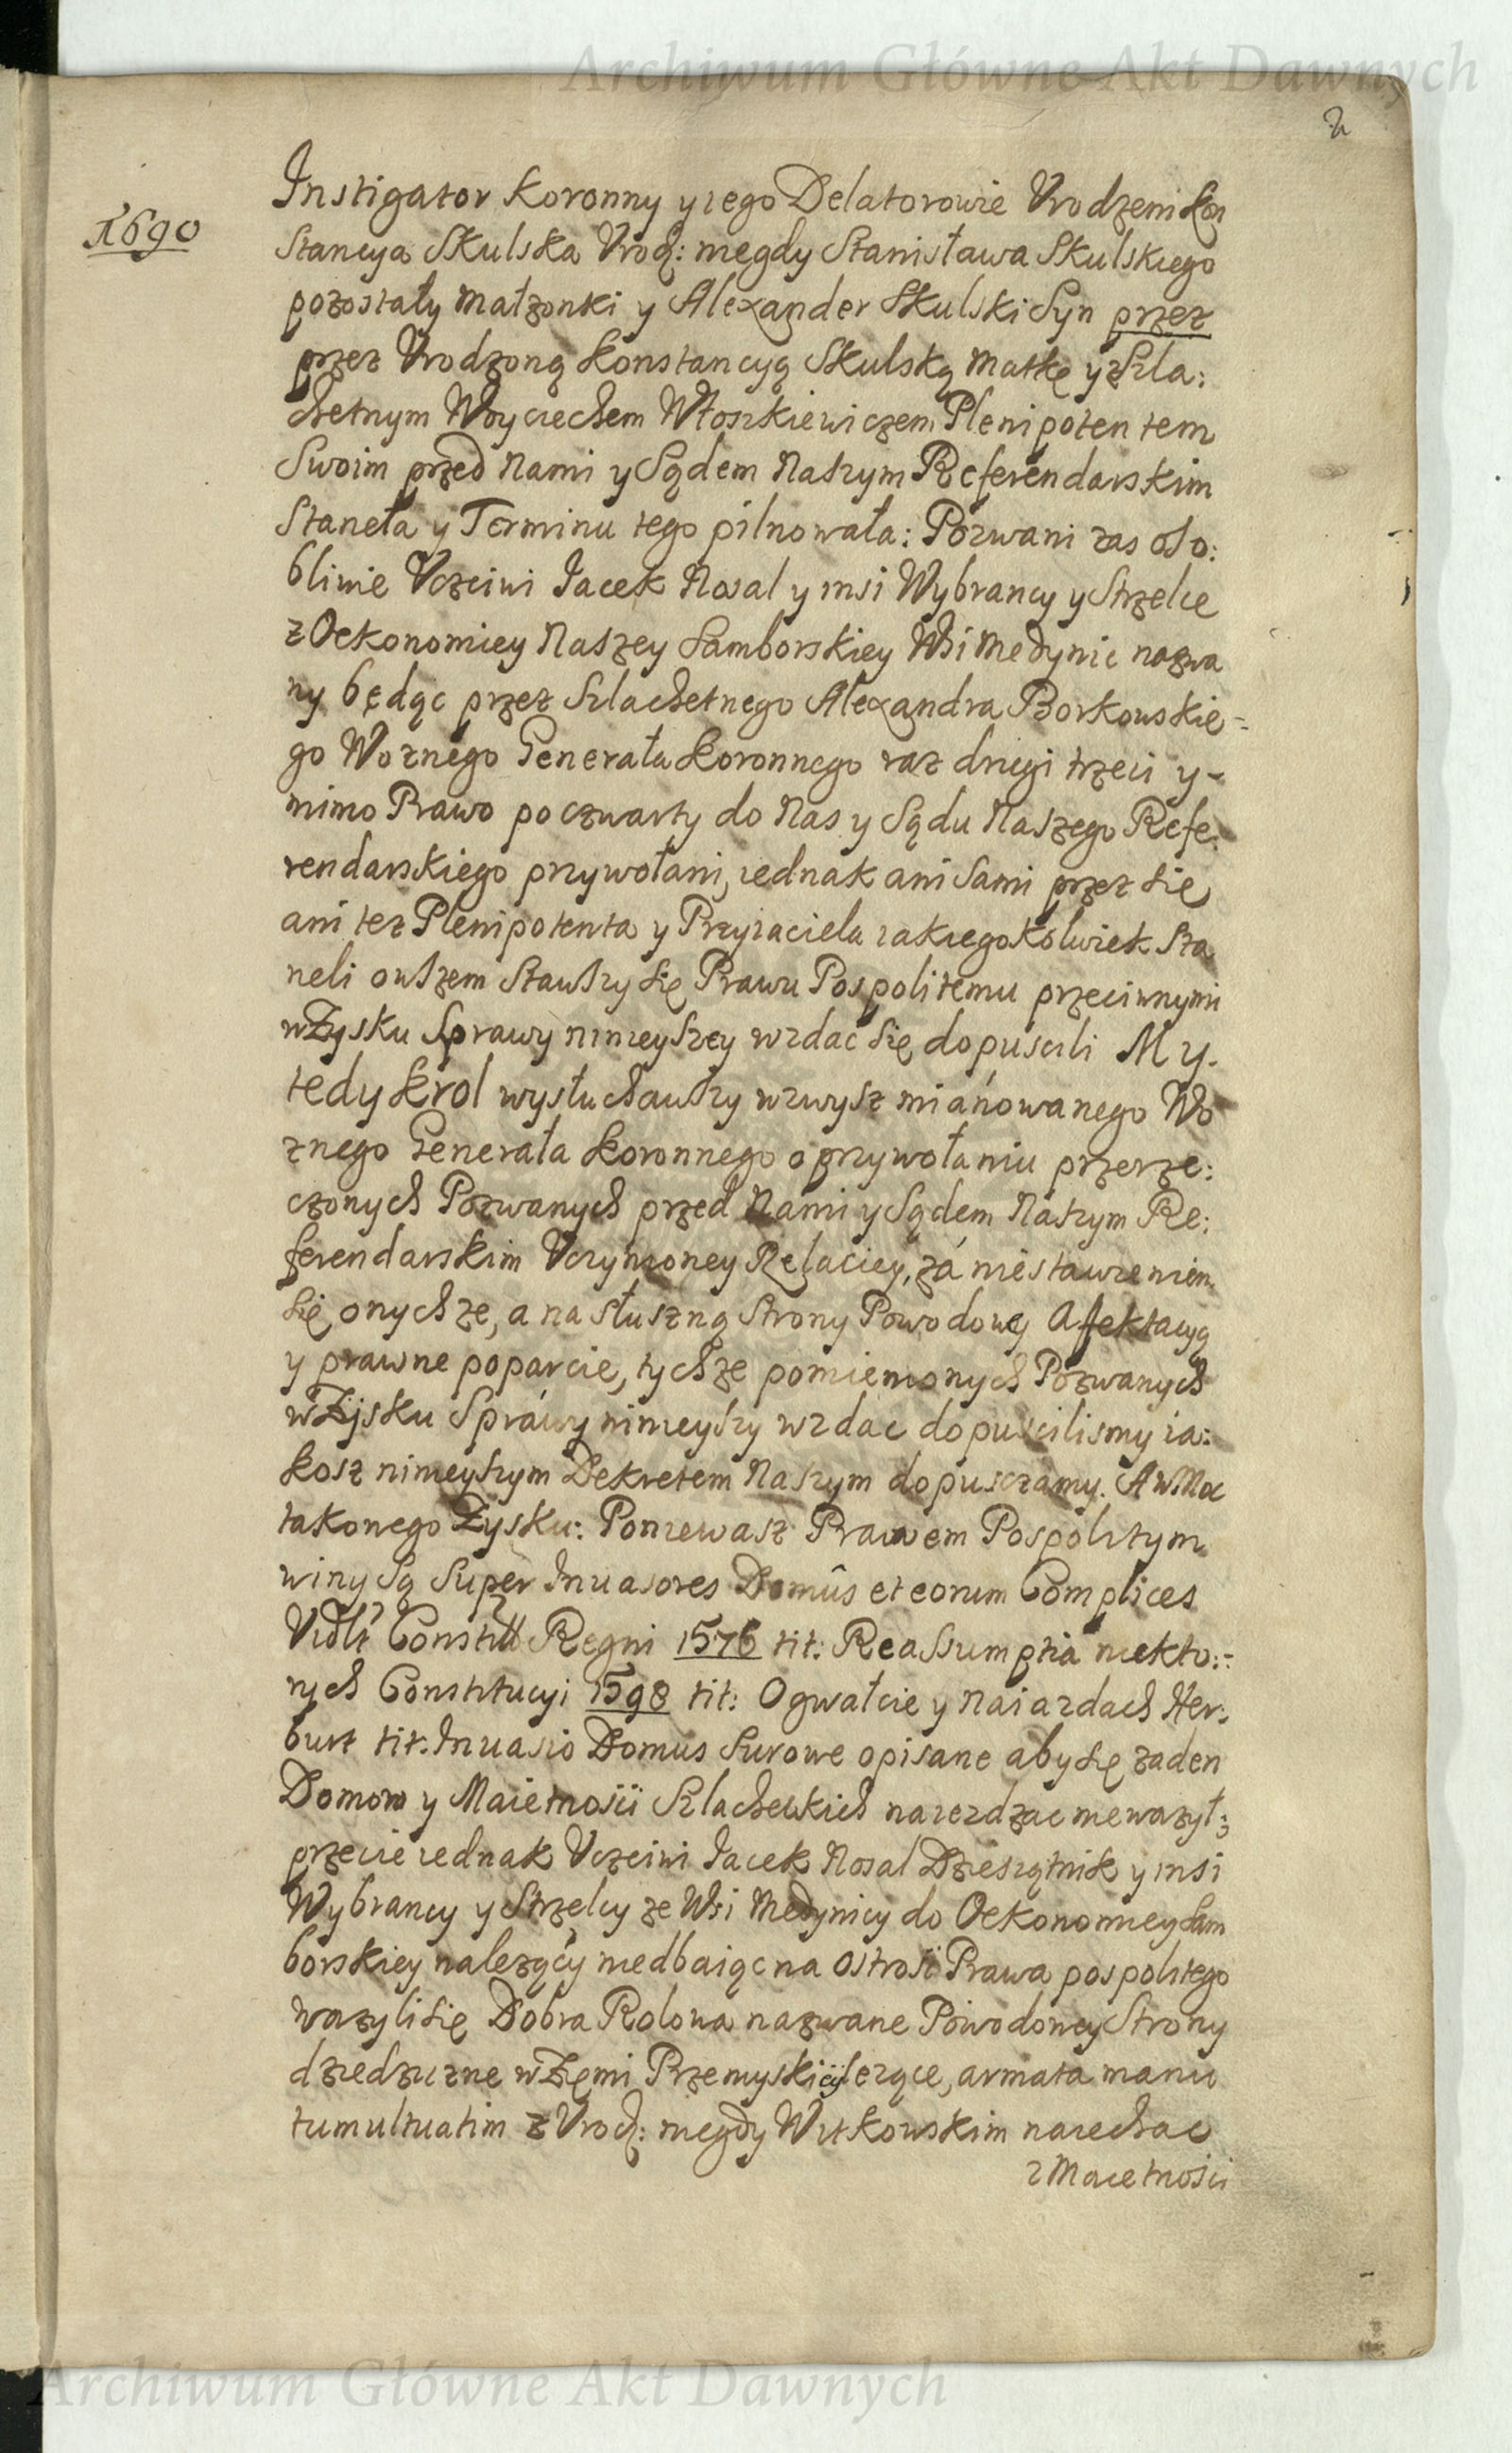 Archiwum Główne Akt Dawnych
2
1690
Instigator Koronny y iego Delatorowie Vrodzeni Kon
Stancya Skulska Vrod: niegdy Stanisława Skulskiego
pozostały Małzonki y Alexander Skulski Syn przez
przez Vrodzoną Konstancyą Skulską Matkę y z Szla:
chetnym Woyciechem Włoszkiewiczem Plenipotentem
Swoim przed Nami y Sądem Naszym Referendarskim
Staneła y Terminu tego pilnowała: Pozwani zas oso:
bliwie Vczciwi Jacek Nosal y insi Wybrancy y Strzelce
z Oekonomiey Naszey Samborskiey Wsi Medynic nazwa
ny będąc przez Szlachetnego Alexandra Borkowskie=
go Woznego Generała Koronnego raz drugi trzeci y-
mimo Prawo poczwarty do Nas y Sądu Naszego Refe:
rendarskiego przywołani, iednak ani Sami przez się
ani tez Plenipotenta y Przyiaciela iakiegokolwiek Sta
neli owszem Stawszy się Prawu Pospolitemu przeciwnymi
w Zysku Sprawy ninieyszey wzdac się dopuscili My.
tedy Krol wysłuchawszy wzwysz mianowanego Wo
znego Generała Koronnego o przywołaniu przerze:
czonych Pozwanych przed Nami y Sądem Naszym Re:
ferendarskim Vczynioney Relaciey, zá niestawieniem
się onychze, a na słuszną Strony Powodowey Afektacyą
y prawne poparcie, tychze pomienionych Pozwanych
w Zysku Spráwy ninieyszy wzdac dopuscilismy ia:
kosz ninieyszym Dekretem Naszym dopusczamy. A w Moc
takonego Zysku: Poniewasz Prawem Pospolitym
winy są Super Inuasores Domûs et eorum Complices
Vidlt Constit Regni 1576 tit: Reassumptia niekto:=
rych Constitucyi 1598 tit: Ogwałcie y Naiazdach Her:
burt tit: Inuasio Domus Surowe opisane aby się zaden
Domow y Maiętnosci Szlacheckich naiezdzac niewazył:
przecie iednak Vczciwi Jacek Nosal Dziesiątnik y insi
Wybrancy y Strzelcy ze Wsi Medynicy do Oekonomiey Sam
borskiey nalezącÿ niedbaiąc na Ostrość Prawa pospolitego
wazyli się Dobra Rolowa nazwane Powodowey Strony
dziedziczne w Zięmi Przemyskiey lezące, armata manu
tumultuatim z Vrod: niegdy Witkowskim naiechac
z Maiętnosci
Archiwum Główne Akt Dawnych